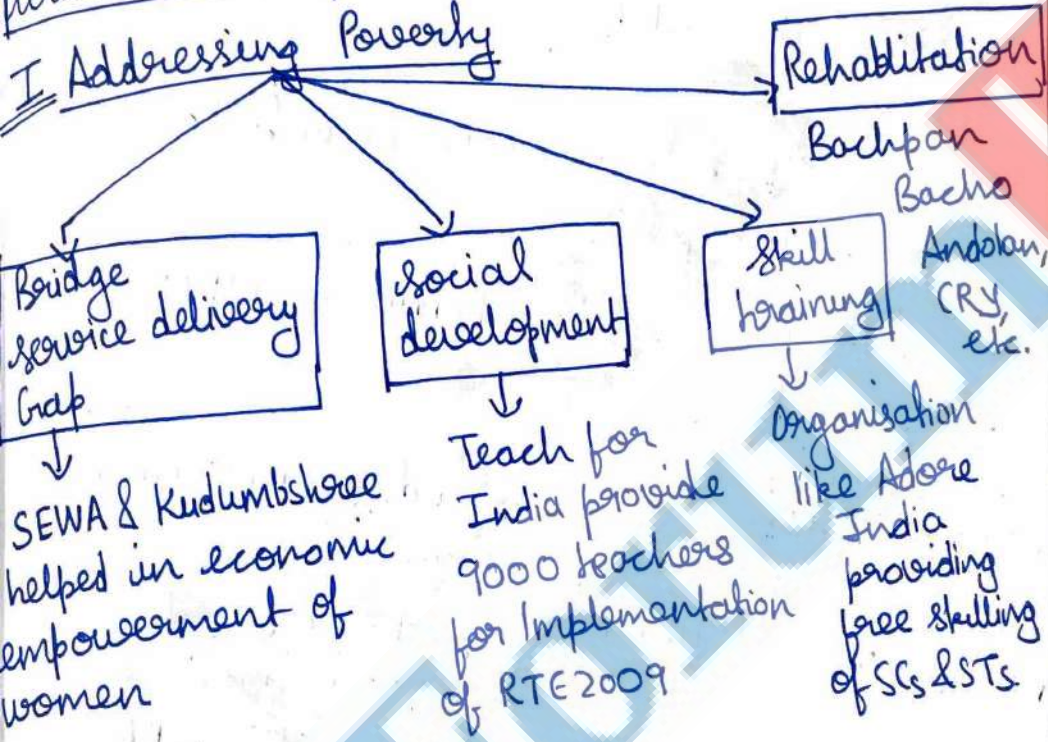 I Addressing Poverty
Rehablitation
Bachpan
Bacho
Andolan,
CRY,
etc.
Bridge
service delivery
Gap
SEWA & Kudumbshree
helped in economic
empowerment of
women
social
development
Teach for
India provide
9000 teachers
for Implementation
of RTE 2009
Skill
training
Organisation
like Adore
India
providing
free skilling
of SCs & STs.
forum